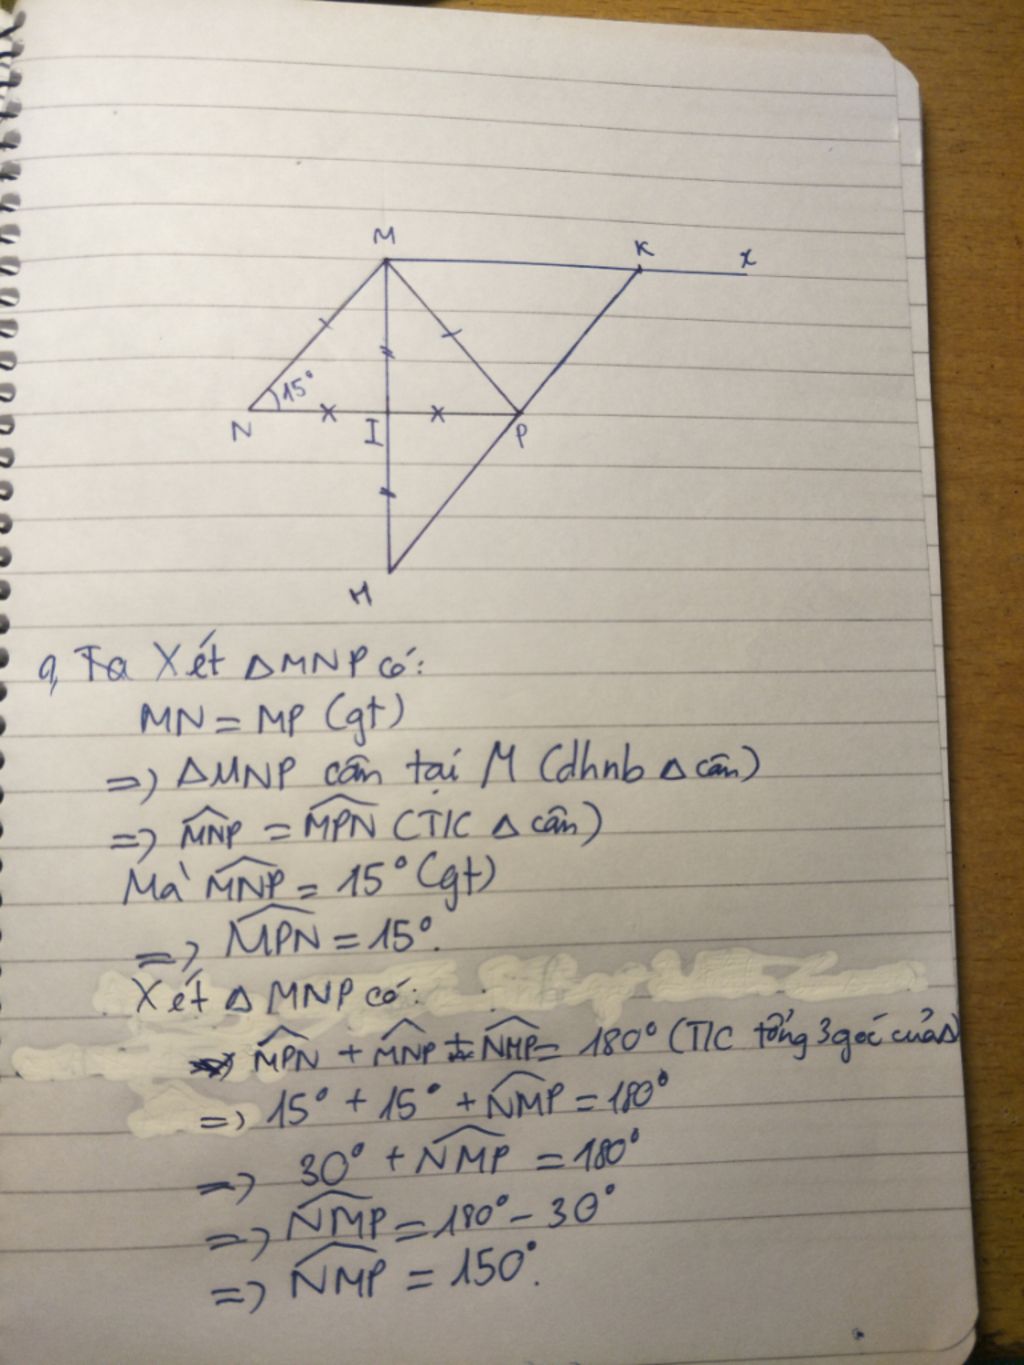 M
K
x
15°
N
I
P
H
a, Ta Xét △MNP có:
MN = MP (gt)
=> △MNP cân tại M (dhnb △ cân)
=> MNP = MPN (T/C △ cân)
Mà MNP = 15° (gt)
=> MPN = 15°.
Xét △ MNP có:
MPN + MNP + NMP = 180° (T/C tổng 3 góc của △)
=> 15° + 15° + NMP = 180°
=> 30° + NMP = 180°
=> NMP = 180° - 30°
=> NMP = 150°.